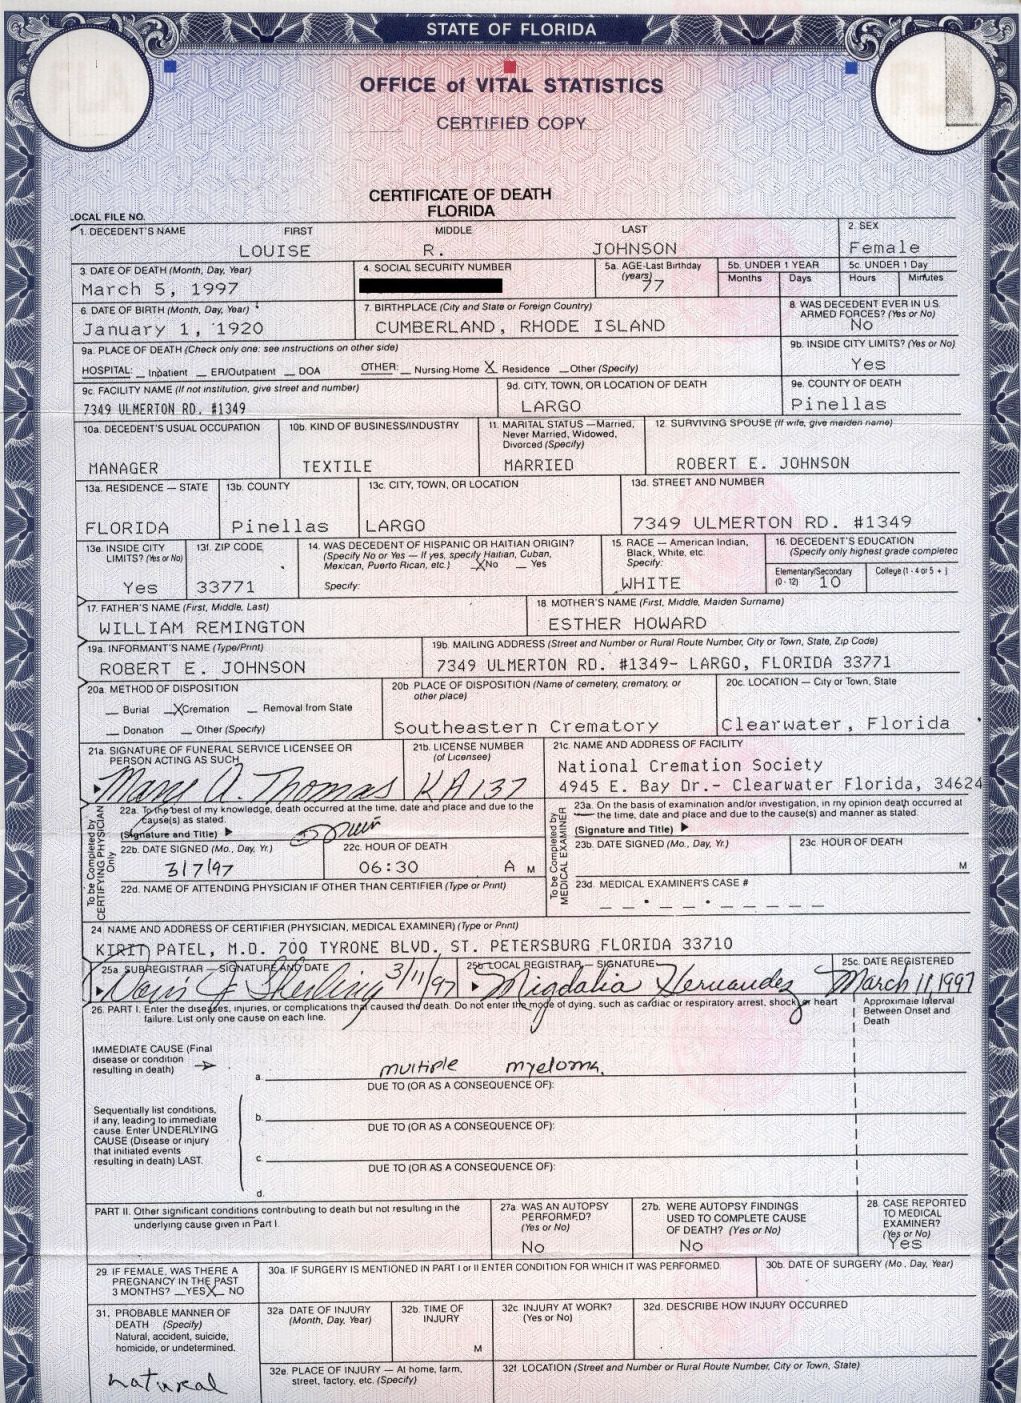 STATE OF FLORIDA
OFFICE of VITAL STATISTICS
CERTIFIED COPY
CERTIFICATE OF DEATH
FLORIDA
LOCAL FILE NO.
1. DECEDENT'S NAME FIRST MIDDLE LAST 2. SEX
LOUISE R. JOHNSON Female
3. DATE OF DEATH (Month, Day, Year) 4. SOCIAL SECURITY NUMBER 5a. AGE-Last Birthday (years) 5b. UNDER 1 YEAR 5c. UNDER 1 Day
Months Days Hours Minutes
March 5, 1997 77
6. DATE OF BIRTH (Month, Day, Year) 7. BIRTHPLACE (City and State or Foreign Country) 8. WAS DECEDENT EVER IN U.S. ARMED FORCES? (Yes or No)
January 1, 1920 CUMBERLAND, RHODE ISLAND No
9a. PLACE OF DEATH (Check only one: see instructions on other side) 9b. INSIDE CITY LIMITS? (Yes or No)
HOSPITAL: _ Inpatient _ ER/Outpatient _ DOA OTHER: _ Nursing Home X Residence _ Other (Specify) Yes
9c. FACILITY NAME (If not institution, give street and number) 9d. CITY, TOWN, OR LOCATION OF DEATH 9e. COUNTY OF DEATH
7349 ULMERTON RD. #1349 LARGO Pinellas
10a. DECEDENT'S USUAL OCCUPATION 10b. KIND OF BUSINESS/INDUSTRY 11. MARITAL STATUS — Married, Never Married, Widowed, Divorced (Specify) 12. SURVIVING SPOUSE (If wife, give maiden name)
MANAGER TEXTILE MARRIED ROBERT E. JOHNSON
13a. RESIDENCE — STATE 13b. COUNTY 13c. CITY, TOWN, OR LOCATION 13d. STREET AND NUMBER
FLORIDA Pinellas LARGO 7349 ULMERTON RD. #1349
13e. INSIDE CITY LIMITS? (Yes or No) 13f. ZIP CODE 14. WAS DECEDENT OF HISPANIC OR HAITIAN ORIGIN? 15. RACE — American Indian, Black, White, etc. Specify: 16. DECEDENT'S EDUCATION
(Specify No or Yes — If yes, specify Haitian, Cuban, Mexican, Puerto Rican, etc.) X No _ Yes (Specify only highest grade completed
Elementary/Secondary (0 - 12) College (1 - 4 or 5 + )
Yes 33771 Specify: WHITE 10
17. FATHER'S NAME (First, Middle, Last) 18. MOTHER'S NAME (First, Middle, Maiden Surname)
WILLIAM REMINGTON ESTHER HOWARD
19a. INFORMANT'S NAME (Type/Print) 19b. MAILING ADDRESS (Street and Number or Rural Route Number, City or Town, State, Zip Code)
ROBERT E. JOHNSON 7349 ULMERTON RD. #1349- LARGO, FLORIDA 33771
20a. METHOD OF DISPOSITION 20b. PLACE OF DISPOSITION (Name of cemetery, crematory, or other place) 20c. LOCATION — City or Town, State
_ Burial X Cremation _ Removal from State
_ Donation _ Other (Specify) Southeastern Crematory Clearwater, Florida
21a. SIGNATURE OF FUNERAL SERVICE LICENSEE OR PERSON ACTING AS SUCH 21b. LICENSE NUMBER (of Licensee) 21c. NAME AND ADDRESS OF FACILITY
Mary A. Thomas KA137 National Cremation Society
4945 E. Bay Dr.- Clearwater Florida, 34624
To be Completed by CERTIFYING PHYSICIAN Only
22a. To the best of my knowledge, death occurred at the time, date and place and due to the cause(s) as stated.
(Signature and Title)
22b. DATE SIGNED (Mo., Day, Yr.) 22c. HOUR OF DEATH
3/7/97 06:30 A M
22d. NAME OF ATTENDING PHYSICIAN IF OTHER THAN CERTIFIER (Type or Print)
To be Completed by MEDICAL EXAMINER
23a. On the basis of examination and/or investigation, in my opinion death occurred at the time, date and place and due to the cause(s) and manner as stated.
(Signature and Title)
23b. DATE SIGNED (Mo., Day, Yr.) 23c. HOUR OF DEATH
M
23d. MEDICAL EXAMINER'S CASE #
24 NAME AND ADDRESS OF CERTIFIER (PHYSICIAN, MEDICAL EXAMINER) (Type or Print)
KIRIT PATEL, M.D. 700 TYRONE BLVD. ST. PETERSBURG FLORIDA 33710
25a. SUBREGISTRAR — SIGNATURE AND DATE 25b LOCAL REGISTRAR — SIGNATURE 25c. DATE REGISTERED
3/11/97 Migdalia Hernandez March 11, 1997
26. PART I. Enter the diseases, injuries, or complications that caused the death. Do not enter the mode of dying, such as cardiac or respiratory arrest, shock, or heart failure. List only one cause on each line.
Approximate Interval Between Onset and Death
IMMEDIATE CAUSE (Final disease or condition resulting in death)
a. multiple myeloma.
DUE TO (OR AS A CONSEQUENCE OF):
Sequentially list conditions, if any, leading to immediate cause. Enter UNDERLYING CAUSE (Disease or injury that initiated events resulting in death) LAST.
b.
DUE TO (OR AS A CONSEQUENCE OF):
c.
DUE TO (OR AS A CONSEQUENCE OF):
d.
PART II. Other significant conditions contributing to death but not resulting in the underlying cause given in Part I. 27a. WAS AN AUTOPSY PERFORMED? (Yes or No) 27b. WERE AUTOPSY FINDINGS USED TO COMPLETE CAUSE OF DEATH? (Yes or No) 28. CASE REPORTED TO MEDICAL EXAMINER? (Yes or No)
No No Yes
29. IF FEMALE, WAS THERE A PREGNANCY IN THE PAST 3 MONTHS? _ YES X NO 30a. IF SURGERY IS MENTIONED IN PART I or II ENTER CONDITION FOR WHICH IT WAS PERFORMED 30b. DATE OF SURGERY (Mo., Day, Year)
31. PROBABLE MANNER OF DEATH (Specify) Natural, accident, suicide, homicide, or undetermined. 32a DATE OF INJURY (Month, Day, Year) 32b. TIME OF INJURY M 32c INJURY AT WORK? (Yes or No) 32d. DESCRIBE HOW INJURY OCCURRED
natural 32e. PLACE OF INJURY — At home, farm, street, factory, etc. (Specify) 32f. LOCATION (Street and Number or Rural Route Number, City or Town, State)